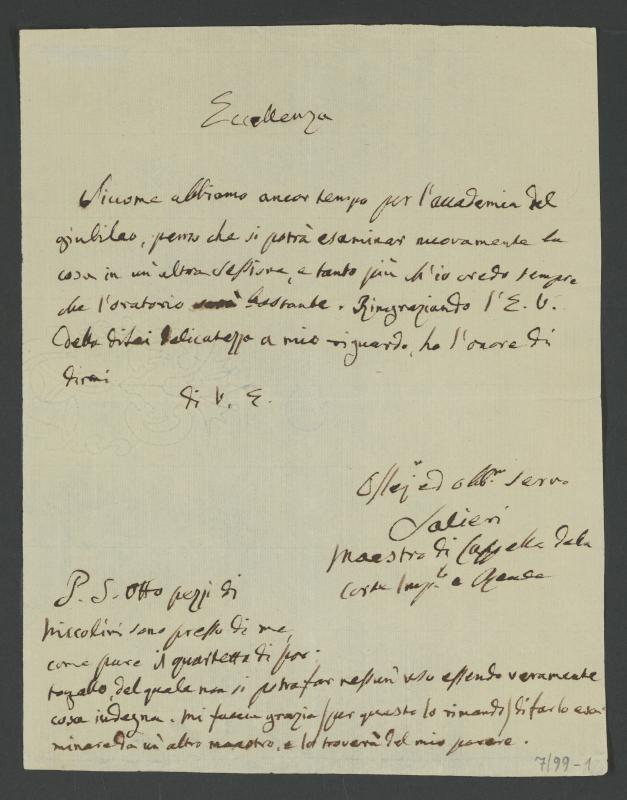 Eccellenza
Siccome abbiamo ancor tempo per l'accademia del
giubileo, penso che si potrà esaminar nuovamente la
cosa in un'altra Sessione, e tanto più ch'io credo sempre
che l'oratorio bastante. Ringraziando l'E. V.
della di lei delicatezza a mio riguardo, ho l'onore di
dirmi
di V. E.
ed obb.mo servo
Salieri
Maestro di Cappella della
corte Imp.le e Reale
P. S. Otto pezzi di
Niccolini sono presso di me,
come pure il quartetto di por-
togallo, del quale non si potrà far nessun uso essendo veramente
cosa indegna. Mi faccia grazia (per questo lo rimando) di farlo esa-
minare da un'altro maestro, e lo troverà del mio parere.
7/99-1